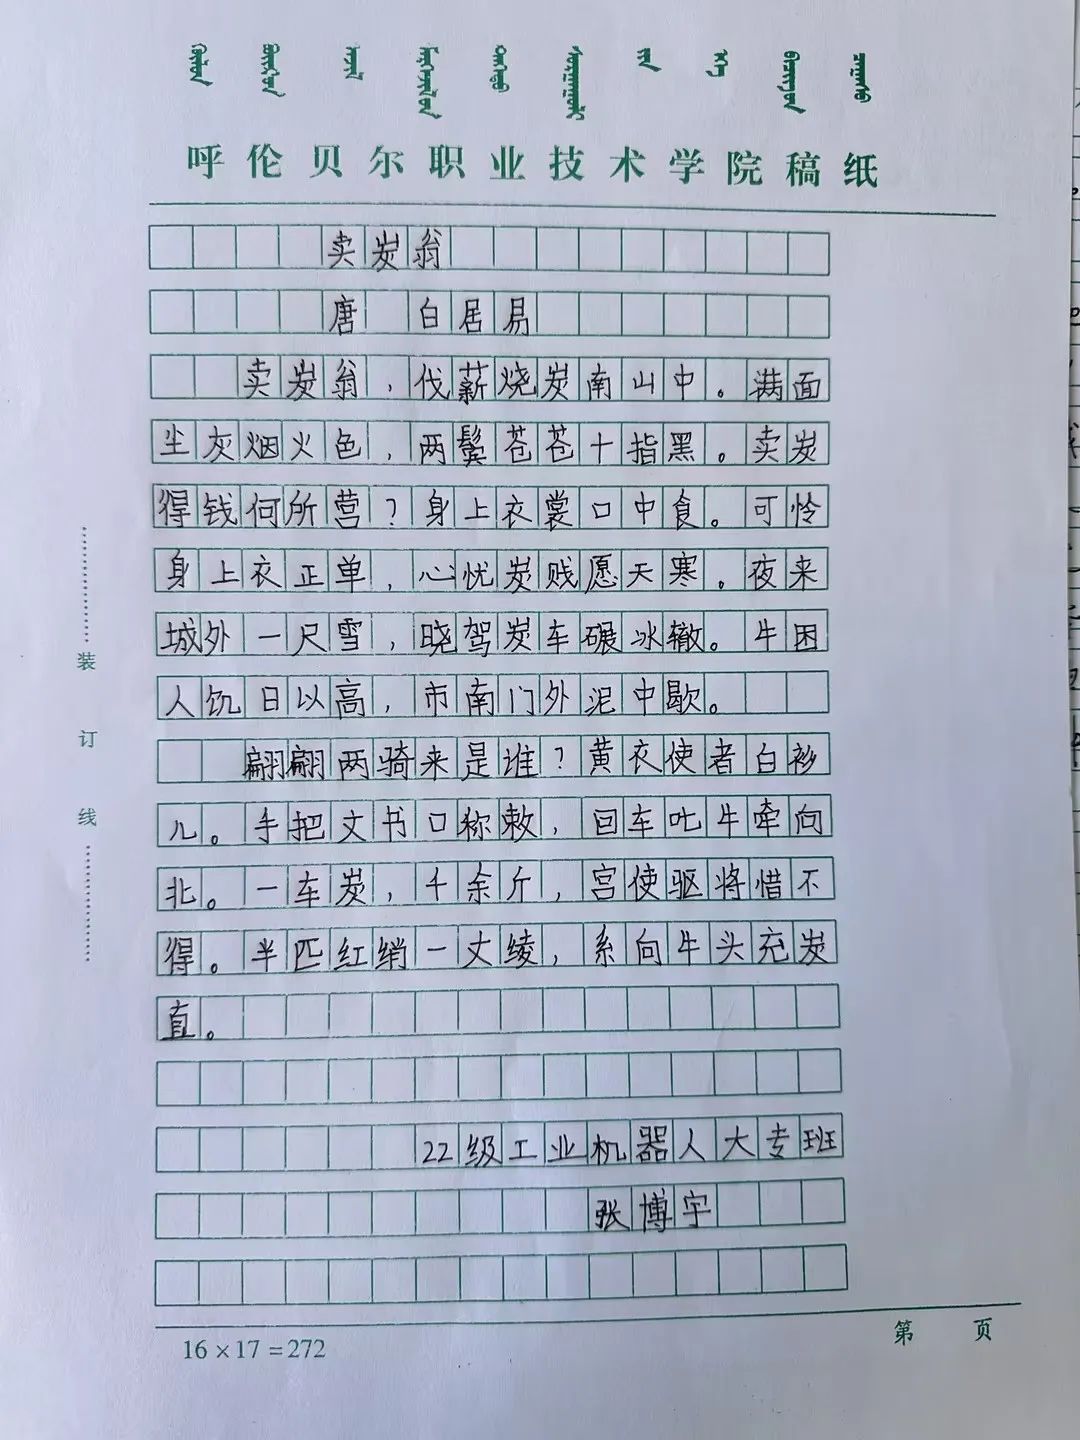 呼伦贝尔职业技术学院稿纸
卖炭翁
唐 白居易
卖炭翁，伐薪烧炭南山中。满面
尘灰烟火色，两鬓苍苍十指黑。卖炭
得钱何所营？身上衣裳口中食。可怜
身上衣正单，心忧炭贱愿天寒。夜来
城外一尺雪，晓驾炭车碾冰辙。牛困
人饥日以高，市南门外泥中歇。
翩翩两骑来是谁？黄衣使者白衫
儿。手把文书口称敕，回车叱牛牵向
北。一车炭，千余斤，宫使驱将惜不
得。半匹红绡一丈绫，系向牛头充炭
直。
22级工业机器人大专班
张博宇
装订线
16×17=272
第 页